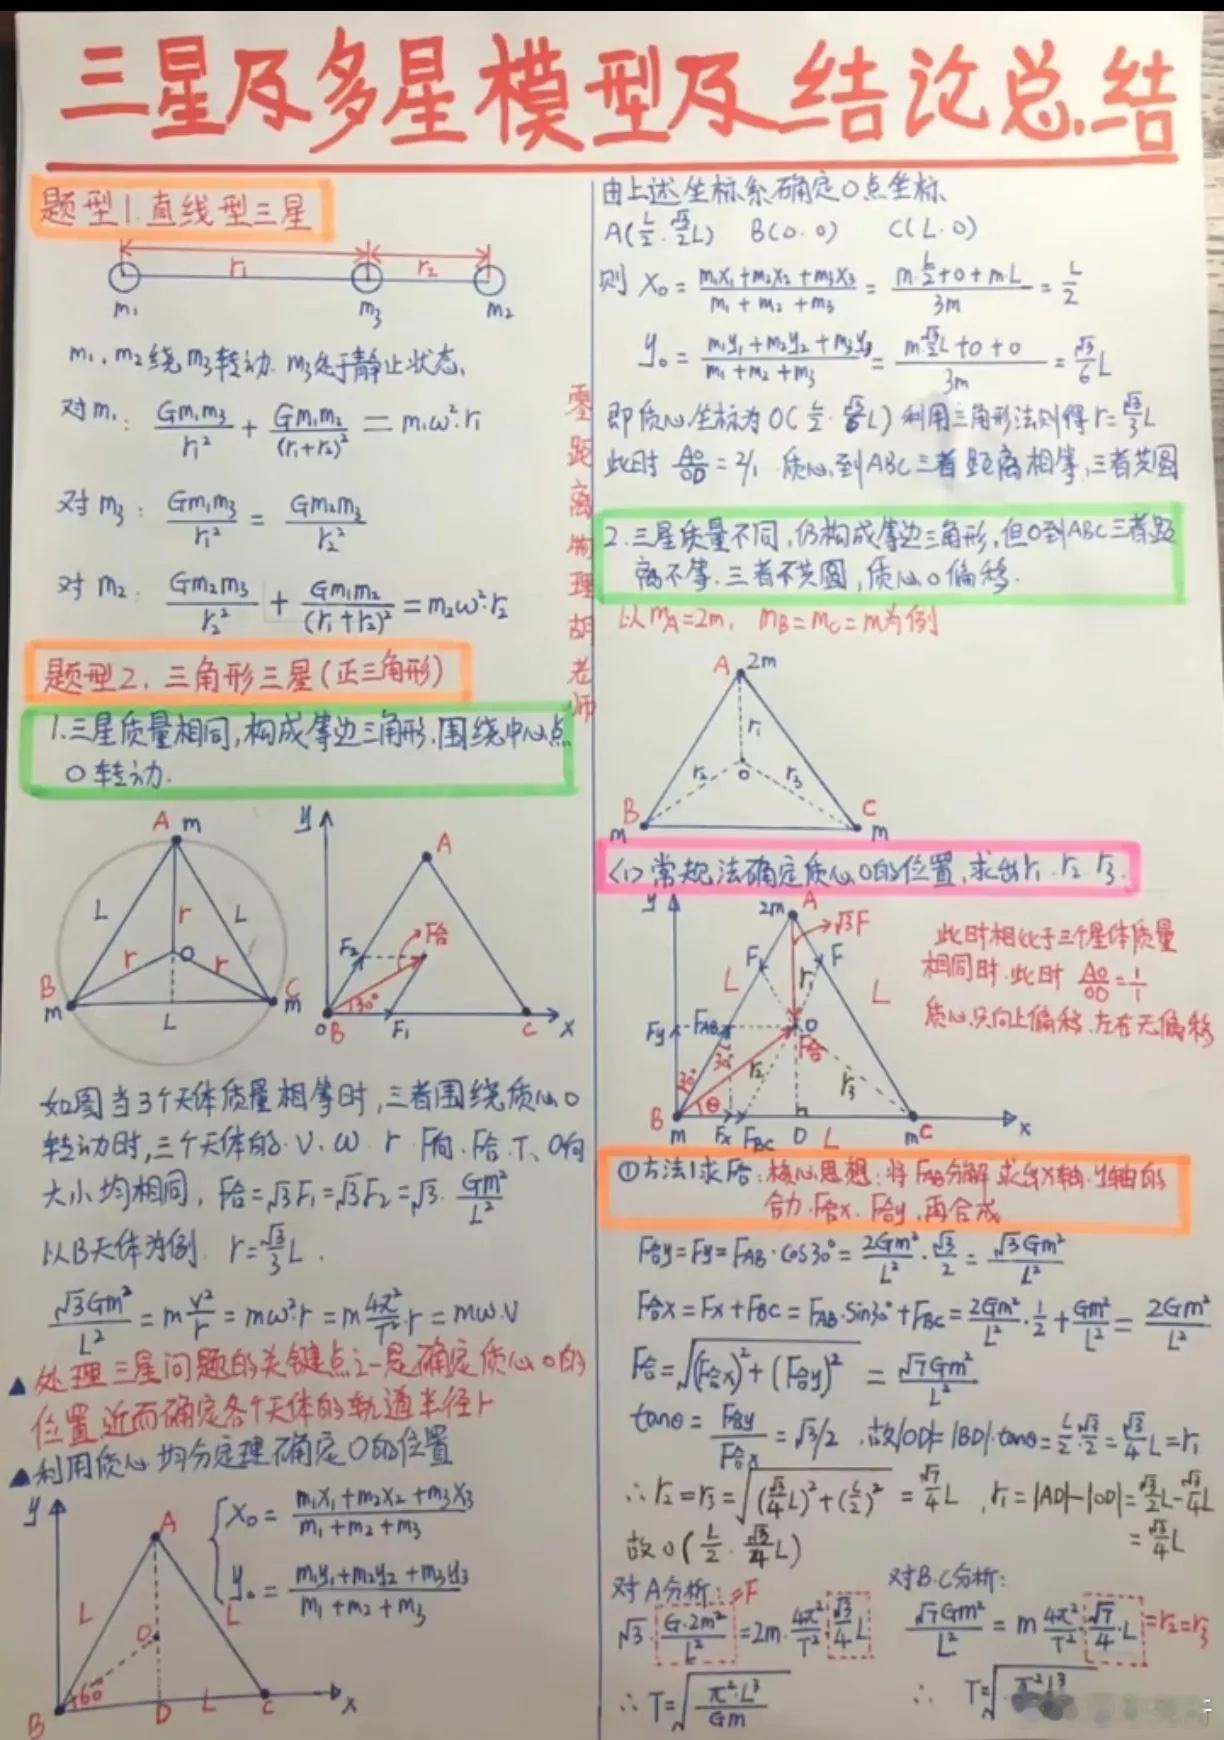 三星及多星模型及结论总结
题型1.直线型三星
r₁ r₂
m₁ m₃ m₂
m₁、m₂绕m₃转动.m₃处于静止状态.
对m₁: Gm₁m₃/r₁² + Gm₁m₂/(r₁+r₂)² = m₁ω²·r₁
对m₃: Gm₁m₃/r₁² = Gm₂m₃/r₂²
对m₂: Gm₂m₃/r₂² + Gm₁m₂/(r₁+r₂)² = m₂ω²·r₂
题型2.三角形三星(正三角形)
1.三星质量相同,构成等边三角形.围绕中心点
O转动.
A m
L L
r
r O r
B C
m m
L
y
A
F₂ F合
30°
O B F₁ C x
如图当3个天体质量相等时,三者围绕质心O
转动时,三个天体的.V.ω.r.F向.F合.T、a向
大小均相同, F合=√3F₁=√3F₂=√3·Gm²/L²
以B天体为例. r=√3/3 L.
√3Gm²/L² = m v²/r = mω²·r = m 4π²/T²·r = mω·V
▲处理三星问题的关键点之一是确定质心O的
位置.近而确定各个天体的轨道半径r
▲利用质心均分定理确定O的位置
y
A
L L
O
60°
B D L C x
x₀ = (m₁x₁+m₂x₂+m₃x₃)/(m₁+m₂+m₃)
y₀ = (m₁y₁+m₂y₂+m₃y₃)/(m₁+m₂+m₃)
零距离物理胡老师
由上述坐标系确定O点坐标
A(L/2·√3/2 L) B(0·0) C(L·0)
则 x₀ = (m₁x₁+m₂x₂+m₃x₃)/(m₁+m₂+m₃) = (m·L/2+0+m·L)/3m = L/2
y₀ = (m₁y₁+m₂y₂+m₃y₃)/(m₁+m₂+m₃) = (m√3/2 L+0+0)/3m = √3/6 L
即质心坐标为O(L/2·√3/6 L) 利用三角形法则得r=√3/3 L
此时 AO/OD=2/1.质心到ABC三者距离相等,三者共圆
2.三星质量不同,仍构成等边三角形,但O到ABC三者距
离不等.三者不共圆,质心O偏移.
以mA=2m, mB=mC=m为例
A 2m
r₁
r₂ O r₃
B C
m m
(1)常规法确定质心O的位置,求出r₁.r₂.r₃.
y
2m A √3F
F F
L r₁ L
Fy FAB O
F合
30° 30° r₂ r₃
B θ
m Fx FBC D L m C x
此时相比于三个星体质量
相同时.此时 AO/OD=1/1
质心只向上偏移.左右无偏移
①方法1求F合:核心思想:将FAB分解求出x轴.y轴的
合力.F合x.F合y.再合成
F合y=Fy=FAB·cos30°=2Gm²/L²·√3/2=√3Gm²/L²
F合x=Fx+FBC=FAB·sin30°+FBC=2Gm²/L²·1/2+Gm²/L²=2Gm²/L²
F合=√((F合x)²+(F合y)²)=√7Gm²/L²
tanθ=F合y/F合x=√3/2.故|OD|=|BD|·tanθ=L/2·√3/2=√3/4 L=r₁
∴r₂=r₃=√((√3/4 L)²+(L/2)²)=√7/4 L, r₁=|AD|-|OD|=√3/2 L-√3/4 L
=√3/4 L
故O(L/2·√3/4 L)
对A分析: =F
√3·G·2m²/L²=2m·4π²/T²·√3/4 L
∴T=√(π²·L³/Gm)
对B.C分析:
√7Gm²/L²=m 4π²/T²·√7/4·L =r₂=r₃
∴ T=√